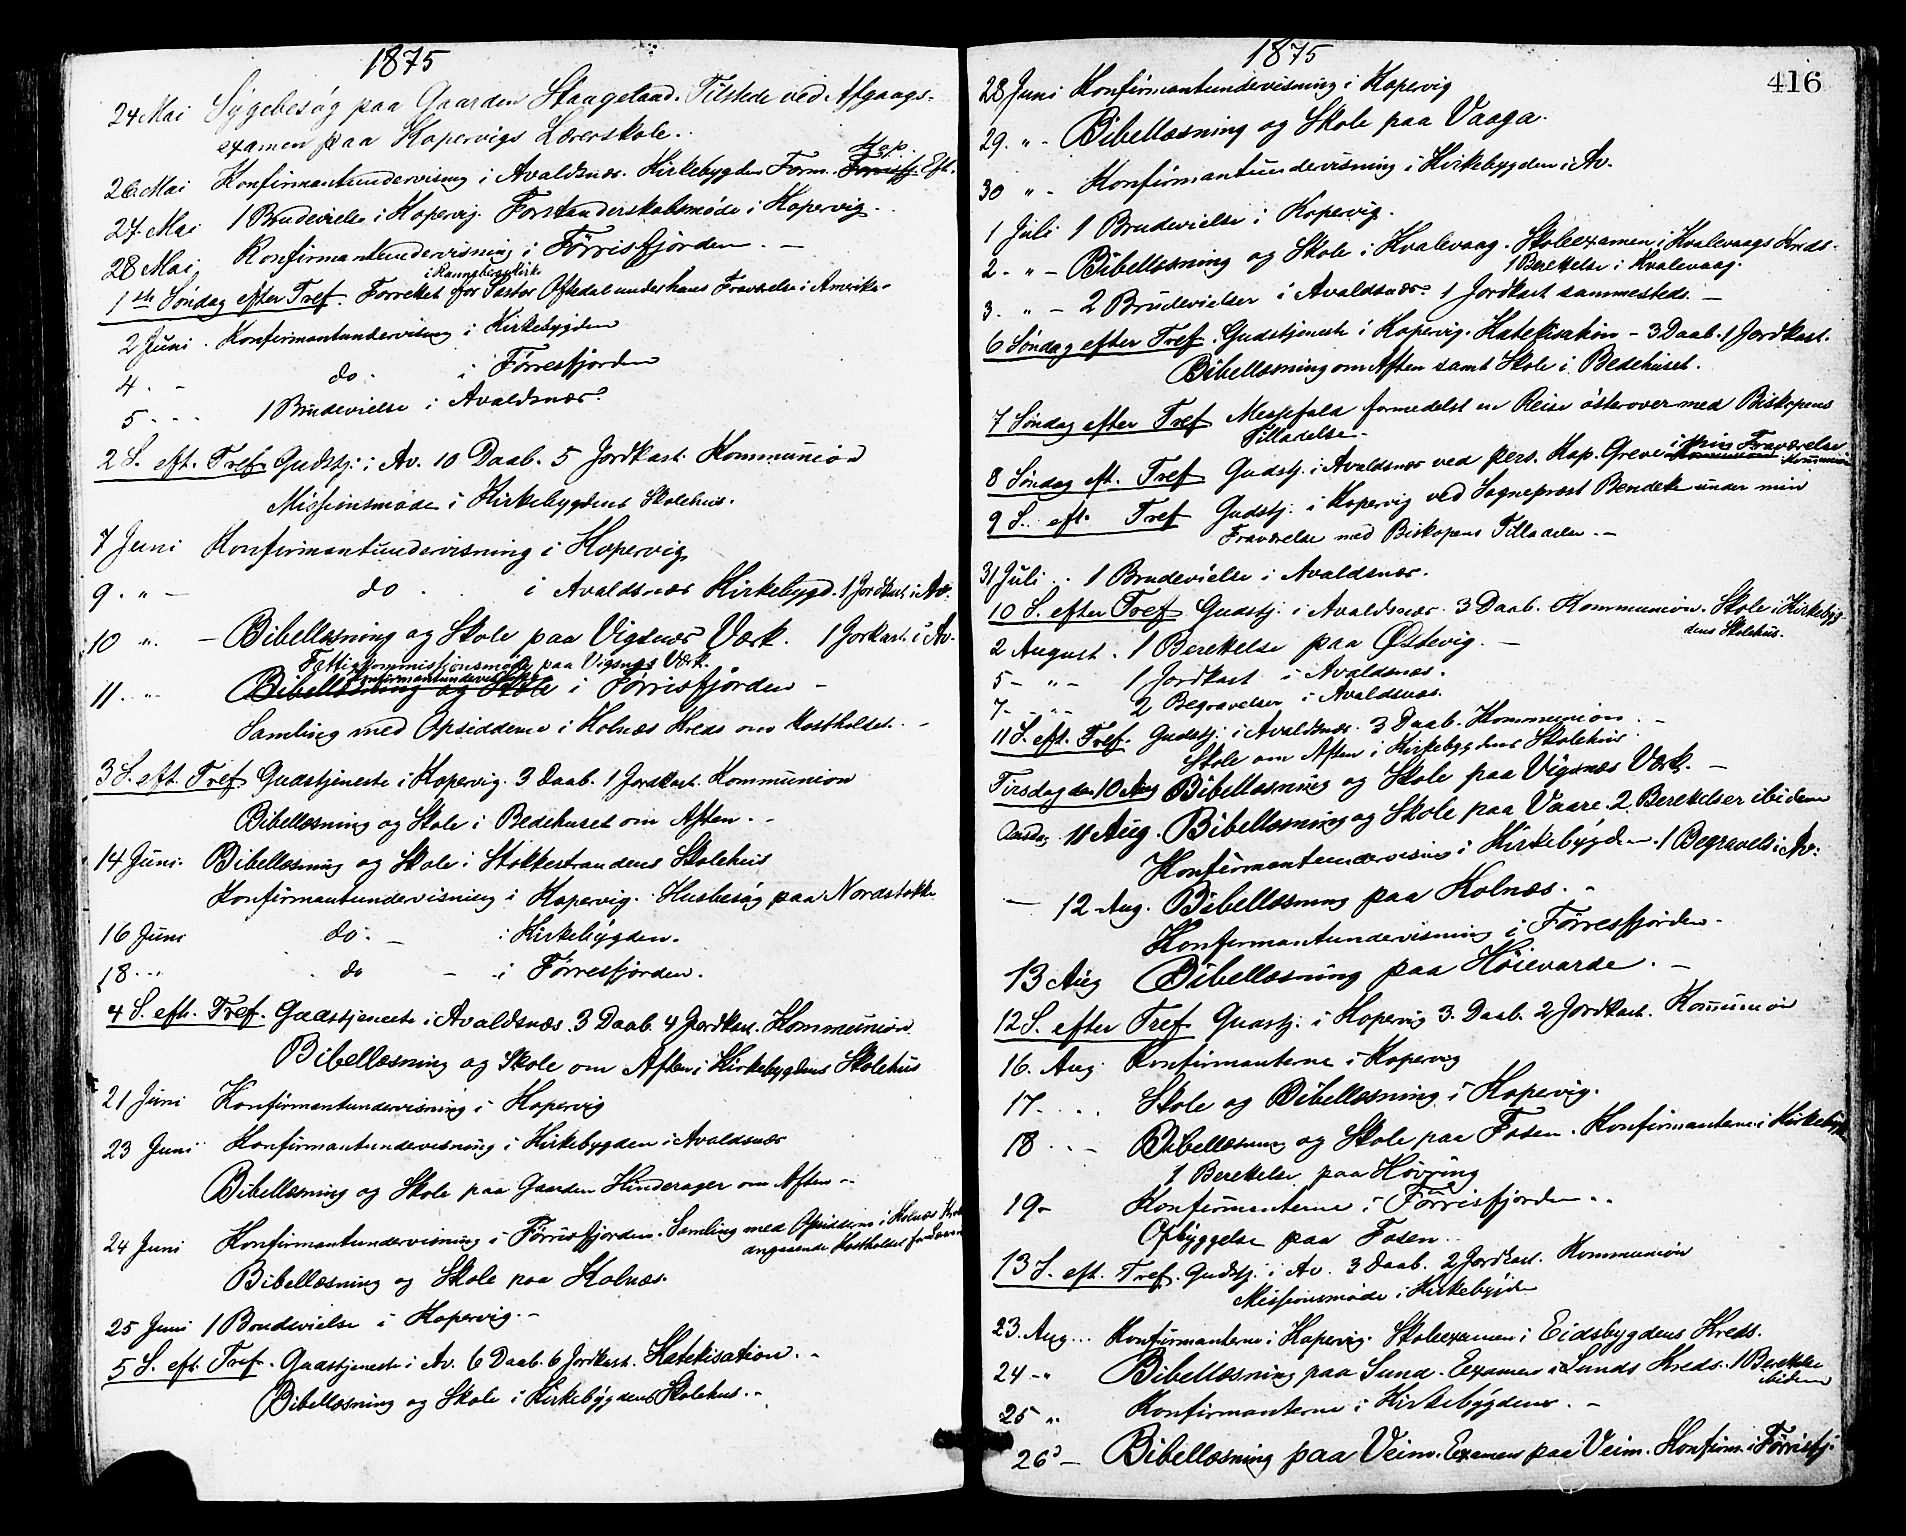 1875
24 Mai Sygebesøg paa Gaarden Skaageland. Tilstede ved Afgangs-
examen paa Kopervigs Lærerskole.
Kop.
26 Mai Konfirmantundervisning i Avaldsnæs. Kirkebygden Form. Førrisfj. Eft.
27 Mai 1 Brudevielse i Kopervig. Forstanderskabsmøde i Kopervig.
28 Mai Konfirmantundervisning i Førrisfjorden. —
1ste Søndag efter Tref. Forrettet for Pastor Oftedal under hans Fraværelse i Amerika.
2 Juni. Konfirmantundervisning i Kirkebygden
4. - do. i Førresfjorden
5 - - - 1 Brudevielse i Avaldsnæs.
2 S. eft. Tref. Gudstj. i Av. 10 Daab. 5 Jordkast. Kommunion
Missionsmøde i Kirkebygdens Skolehus.
7 Juni Konfirmantundervisning i Kopervig
9. " - do. i Avaldsnæs Kirkebygd. 1 Jordkast i Av.
10 " - Bibellæsning og Skole paa Vigsnæs Værk. 1 Jorkast i Av.
Fattigkommissionsmøde paa Vigsnæs Værk.
Konfirmantundervisning
11. " Bibellæsning og Skole i Førrisfjorden -
Samling med Opsidderne i Kolnæs Kreds om Kostholdet. -
3 S. eft. Tref. Gudstjeneste i Kopervig. 3 Daab. 1 Jordkast. Kommunion
Bibellæsning og Skole i Bedehuset om Aften. -
14 Juni. Bibellæsning og Skole i Stokkestrandens Skolehus
Konfirmantundervisning i Kopervig. Husbesøg paa Nordstokke
16 Juni do. - i Kirkebygden.
18 - " . do - i Førresfjorden.
4 S. eft. Tref. Gudstjeneste i Avaldsnæs. 3 Daab. 4 Jordkast. Kommunion.
Bibellæsning og Skole om Aften i Kirkebygdens Skolehus
21 Juni Konfirmantundervisning i Kopervig
23 Juni Konfirmantundervisning i Kirkebygden i Avaldsnæs
Bibellæsning og Skole paa Gaarden Hinderager om Aften -
24 Juni Konfirmantundervisning i Førrisfjorden. Samling med Opsidderne i Kolnæs Kreds
angaaende Kostholdet for
Bibellæsning og Skole paa Kolnæs.
25 Juni 1 Brudevielse i Kopervig. -
5 S. eft. Tref. Gudstjeneste i Av. 6 Daab. 6 Jordkast. Katekisation. -
Bibellæsning og Skole i Kirkebygdens Skolehus. -
1875
416
28 Juni Konfirmantundervisning i Kopervig
29. " - Bibellæsning og Skole paa Vaaga.
30 " - Konfirmantundervisning i Kirkebygden i Av.
1 Juli 1 Brudevielse i Kopervig.
2. " - Bibellæsning og Skole i Kvalevaag. Skoleexamen i Kvalevaags Kreds.
1 Berettelse i Kvalevaag.
3. " - 2 Brudevielser i Avaldsnæs. 1 Jordkast sammesteds. -
6 Søndag efter Tref. Gudstjeneste i Kopervig. Katekisation - 3 Daab. 1 Jordkast.
Bibellæsning om Aften samt Skole i Bedehuset.
7 Søndag efter Tref Messefald formedelst en Reise østerover med Biskopens
Tilladelse.
8 Søndag eft. Tref Gudstj. i Avaldsnæs ved pers. Kap. Greve i Min Fraværelse
Kommunion
9 S. eft. Tref Gudstj. i Kopervig ved Sogneprest Bendeke under min
Fraværelse med Biskopens Tilladelse. -
31 Juli . . 1 Brudevielse i Avaldsnæs.
10 S. efter Tref Gudstj. i Avaldsnæs. 3 Daab. Kommunion. Skole i Kirkebyg
dens Skolehus.
2 August. 1 Berettelse paa Østevig. —
5 - " - 1 Jordkast i Avaldsnæs.
7 - " - 2 Begravelser i Avaldsnæs.
11 S. eft. Tref. Gudstj. i Avaldsnæs. 3 Daab. Kommunion. -
Skole om Aften i Kirkebygdens Skolehus
Tirsdag den 10 Aug Bibellæsning og Skole paa Vigsnæs Værk. -
Onsdag 11 Aug. Bibellæsning og Skole paa Vaare. 2 Berettelser ibidem
Konfirmantundervisning i Kirkebygden. 1 Begravels i Av.
— 12 Aug. Bibellæsning paa Kolnæs. -
Konfirmantundervisning i Førresfjorden -
13 Aug Bibellæsning paa Høievarde. -
12 S. efter Tref Gudstj. i Kopervig 3 Daab. 2 Jordkast. Kommunion
16. Aug. Konfirmanterne i Kopervig
17. . . . Skole og Bibellæsning i Kopervig.
18 . . - Bibellæsning og Skole paa Fosen. Konfirmanterne i Kirkebygd
1 Berettelse paa Høvring
19 - Konfirmanterne i Førrisfjorden. .
Ofbyggelse paa Fosen. .
13 S. eft. Tref. Gudstj. i Av. 3 Daab. 2 Jordkast. Kommunion
Missionsmøde i Kirkebygden
23. Aug... Konfirmanterne i Kopervig. Skoleexamen i Eidsbygdens Kreds.
24 - " Bibellæsning paa Sund. Examen i Sunds Kreds. 1 Berettelse
ibidem
25 " Konfirmanterne i Kirkebygden. -
26 - Bibellæsning paa Veim. Examen paa Veim. Konfirm. i Førrisfj.